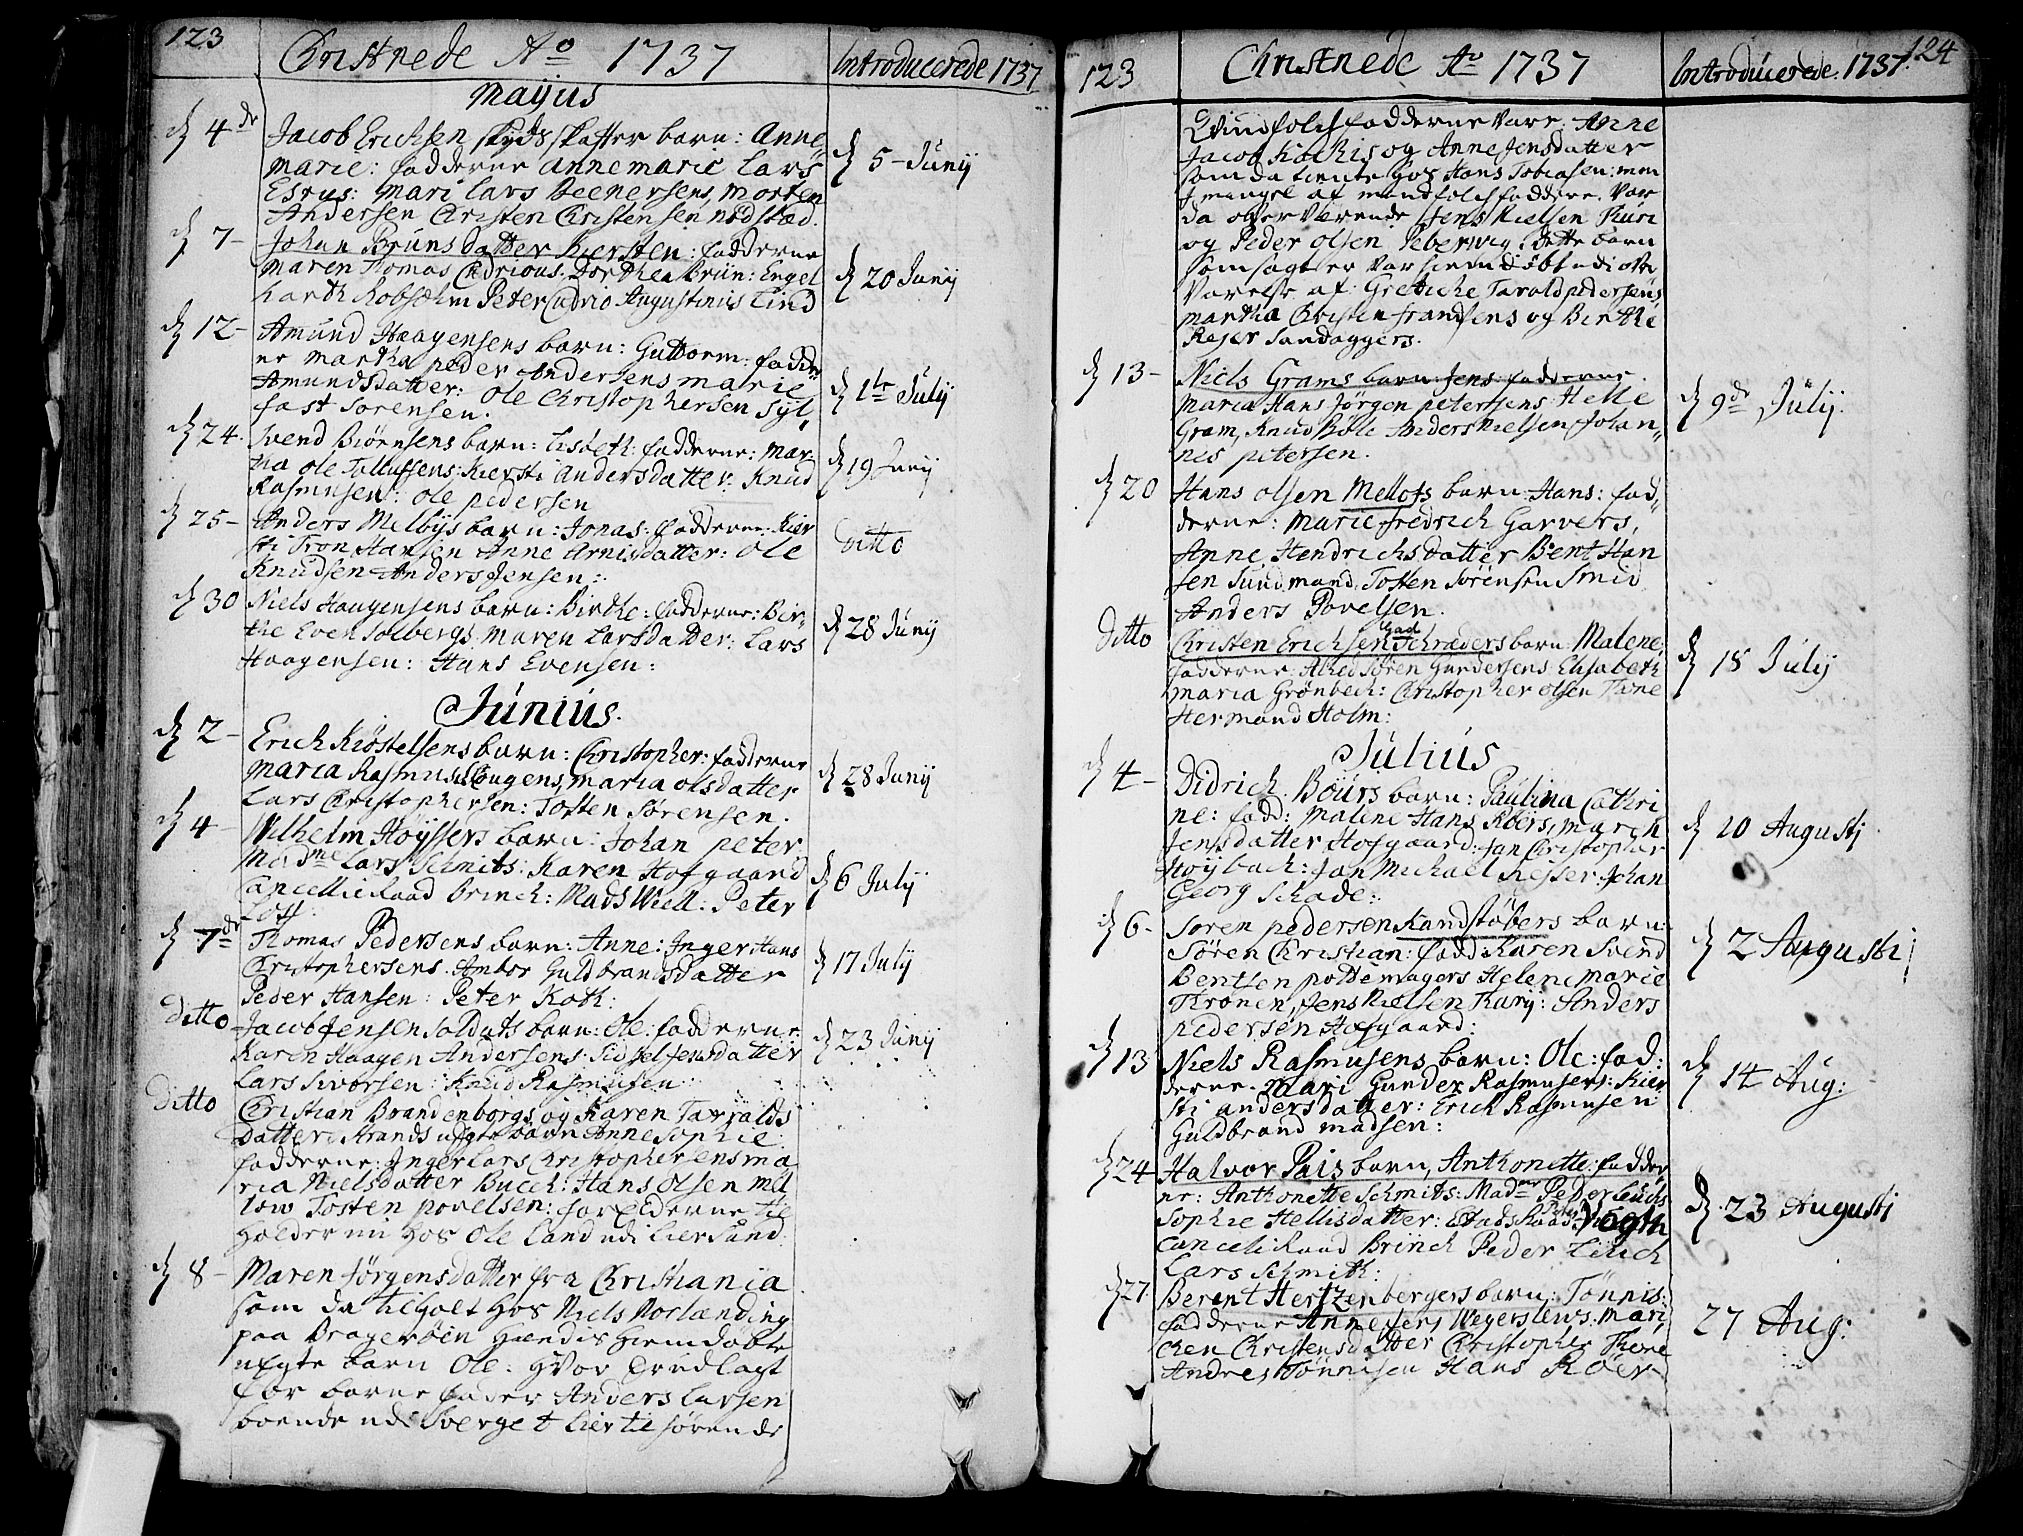 123
Christnede Ao 1737
Introducerede 1737
Mayus
d 4de Jacob Erichsen skydsskatter barn: Anne
marie: fadderne Annemarie Lars
Esrus: Mari Lars Reenersens, Morten
Andersen Christen Christensen nødstæd.
d 5 - Junij
d 7 - Johan Bruns datter Kiersten: fadderne
Maren Thomas Dorthea Brun: Engel
Peter Augustinus Lind
d 20 Junij
d 12 - Amund Haagensens barn: Guttorm: fadde
ne Martha peder Andersens marie
Amundsdatter: Ole Christophersen Syl
fast Sorensen.
d 1te Julij
d 24. Svend Biørnsens barn: Lisbeth: fadderne: Mar
tha Ole Tollufsens: Kiersti Andersdatter: Knud
Rasmusen: Ole pedersen
d 19 Junij
d 25 - Anders Melbÿs barn: Jonas: fadderne: Kier
sti Tron Hansen Anne Arnisdatter: Ole
Knudsen Anders Jensen:
Ditto
d 30 Niels Haugensens barn: Birthe: fadderne: Bir
the Even Solbergs. Maren Larsdatter: Lars
Haagensen: Hans Evensen:
d 28 Junij
Junius.
d 2 - Erich Kiøstelsens barn: Christopher: fadderne
Maria Rasmus Haugens, maria olsdatter
Lars Christophersen: Tosten Sørensen.
d 28 Junij
d 4 - Wilhelm Høyssers barn: Johan peter
Madme Lars Schmits: Karen Hofgaard
Cancellie Raad Brinch: Mads Wiell: Peter
d 6 Julij
d 7de Thomas Pedersens barn: Anne: Inger Hans
Christophersens. Ambor Guldbrandsdatter
Peder Hansen: Peter Koth:
d 17 Julij
Ditto Jacob Jensen Soldats barn: Ole: fadderne
Karen Haagen Andersens. Sidsel Jensdatter
Lars Sivorsen: Knud Rasmusen
d 23 Junij
Ditto Christian Brandenborgs og Karen Taralds
datter: Strands uegte barn Anne Sophie:
fadderne: Inger Lars Christophersens ma
ria Nielsdatter Bucch: Hans Olsen Mel
low Tosten povelsen: forelderne til
holder nu hos Ole Land udi Liersund
d 8 - Maren Jørgensdatter fra Christiania
som da tilholt hos Niels Norlanding
paa Bragerøen hendis hiemdøbte
uegte barn Ole: hvor udlagt
for barne fader Anders Larsen
boende udi Sverge t hertil sørende
123
Christnede Ao 1737
Introducerede. 1737.
124
Qvindfolch fadderne vare: Anne
Jacob Kochis og Anne Jensdatter
som da tiente hos Hans Tobiasen: men
I mangel af mandfolch faddere. var
da overværende Jens Nielsen Thuri
og Peder Olsen Peberwig: dette barn
som sagt er var hiemdøbt udi over
værelse af Gretiche Tarald pedersens
martha Christen frandsens og Birthe
Rejer Sandaggers.
d 13 - Niels Grams barn: Jens: fadderne.
Maria Hans Jørgen petersens: Helle
Gram, Knud Anders Nielsen, Johan
nes petersen.
d 9de Julij.
d 20 Hans Olsen Mellots barn: Hans: fad
derne: Marie fredrich Garvers,
Anne Hendrichsdatter Bent Han
sen Sundmand. Tosten Sørensen Smid
Anders Povelsen.
Ditto Christen Erichsen Gad Schræders barn: Malene,
fadderne: Alhed Søren Gundersens Elisabeth
maria Grønbech: Christopher Olsen Thene
Hermand Holm:
d 15 Julij
Julius
d 4 - Didrich Böurs barn: Paulina Cathri
ne: fadd: Malene Hans Røers, maren
Jensdatter Hofgaard: Jan Christopher
Høijbach: Jan Michael Kejser: Johan
Georg Schade:
d 10 Augustj
d 6 - Soren pedersen Kandstøbers barn
Søren Christian: fadd: Karen Svend
Bentsen pottemagers Helene marie
Thronen, Jens Nielsen Thurij: Anders
pedersen Hofgaard:
d 2 Augusti
d 13 Niels Rasmusens barn: Ole: fad:
derne. Mari Gunder Rasmusens: Kier
sti andersdatter: Erich Rasmusen
Guldbrand madsen:
d 14 Aug:
d 24 Halvor Pais barn, Anthonette: fadder
ne: Anthonette Schmits: Madme Peder Leuchs
Sophie Hellisdatter: Etads Raad Peter Vogth
Canceli Raad Brinch Peder Leuch
Lars Schmith:
d. 23 Augustj
d 27. Berent Hertzenbergers barn: Tønnis:
fadderne Anne Jens Wegerslews: Mari
chen Christensdatter Christopher Thene
Andres Tønnisen Hans Röer
27 Aug: